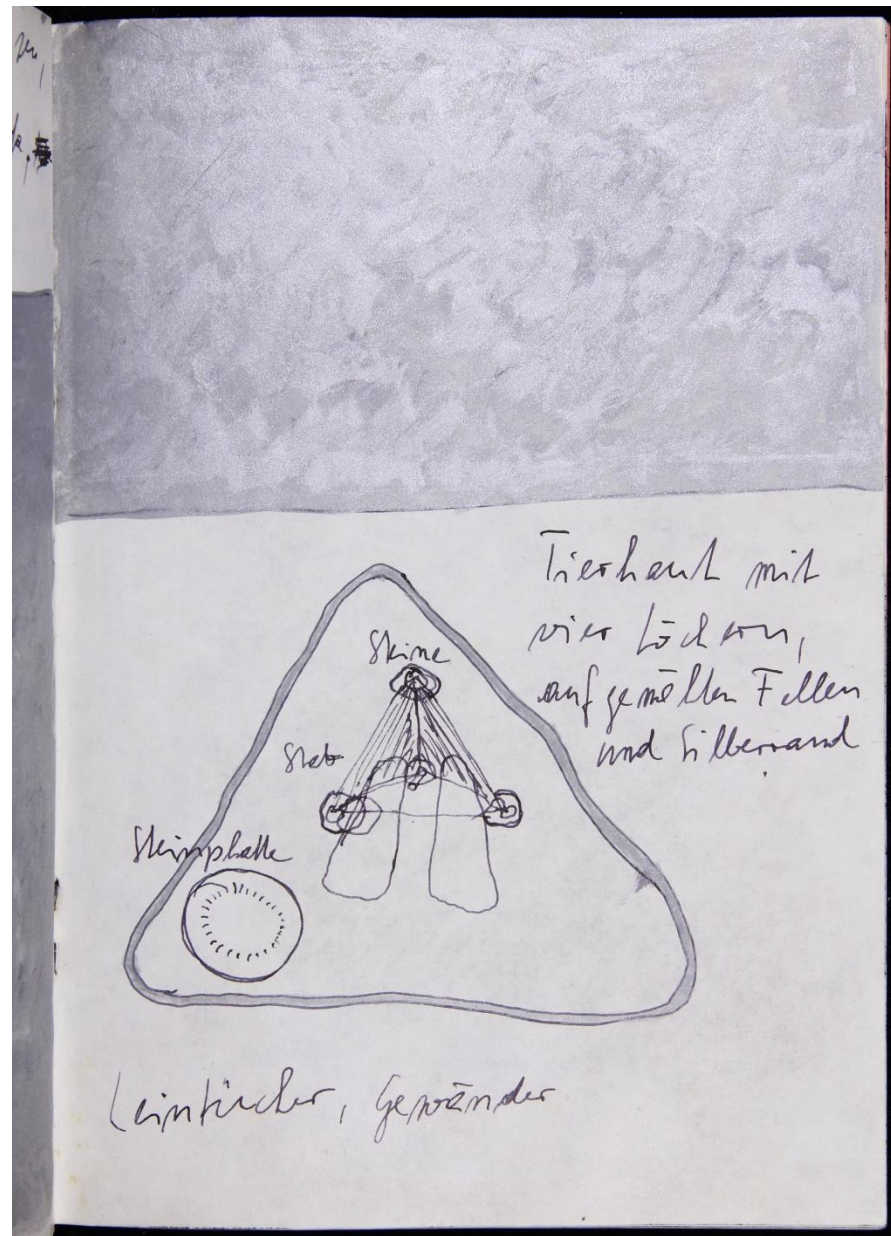 Tierhaut mit
vier Löchern,
aufgemalten Fellen
und Silberrand
Steine
Stab
Steinplatte
Leintücher, Gewänder